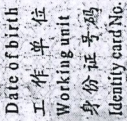 Date of birth
工作单位
Working unit
身份证号码
Identity card No.